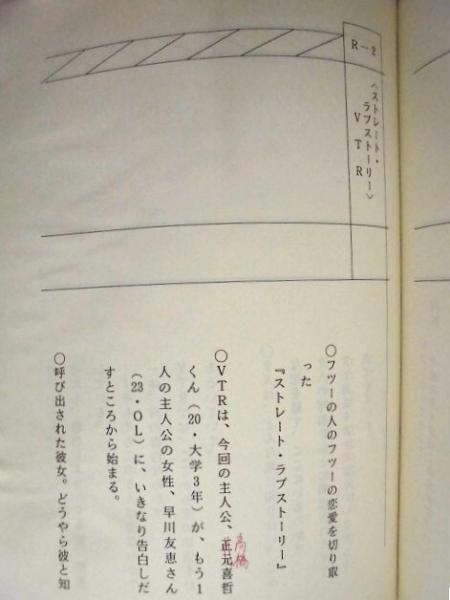 R－2
〈ストレート・
ラブストーリー〉
VTR
○フツーの人のフツーの恋愛を切り取
った
『ストレート・ラブストーリー』
○VTRは、今回の主人公、正元喜哲
高橋
くん（20・大学3年）が、もう1
人の主人公の女性、早川友恵さん
（23・OL）に、いきなり告白しだ
すところから始まる。
○呼び出された彼女。どうやら彼と知